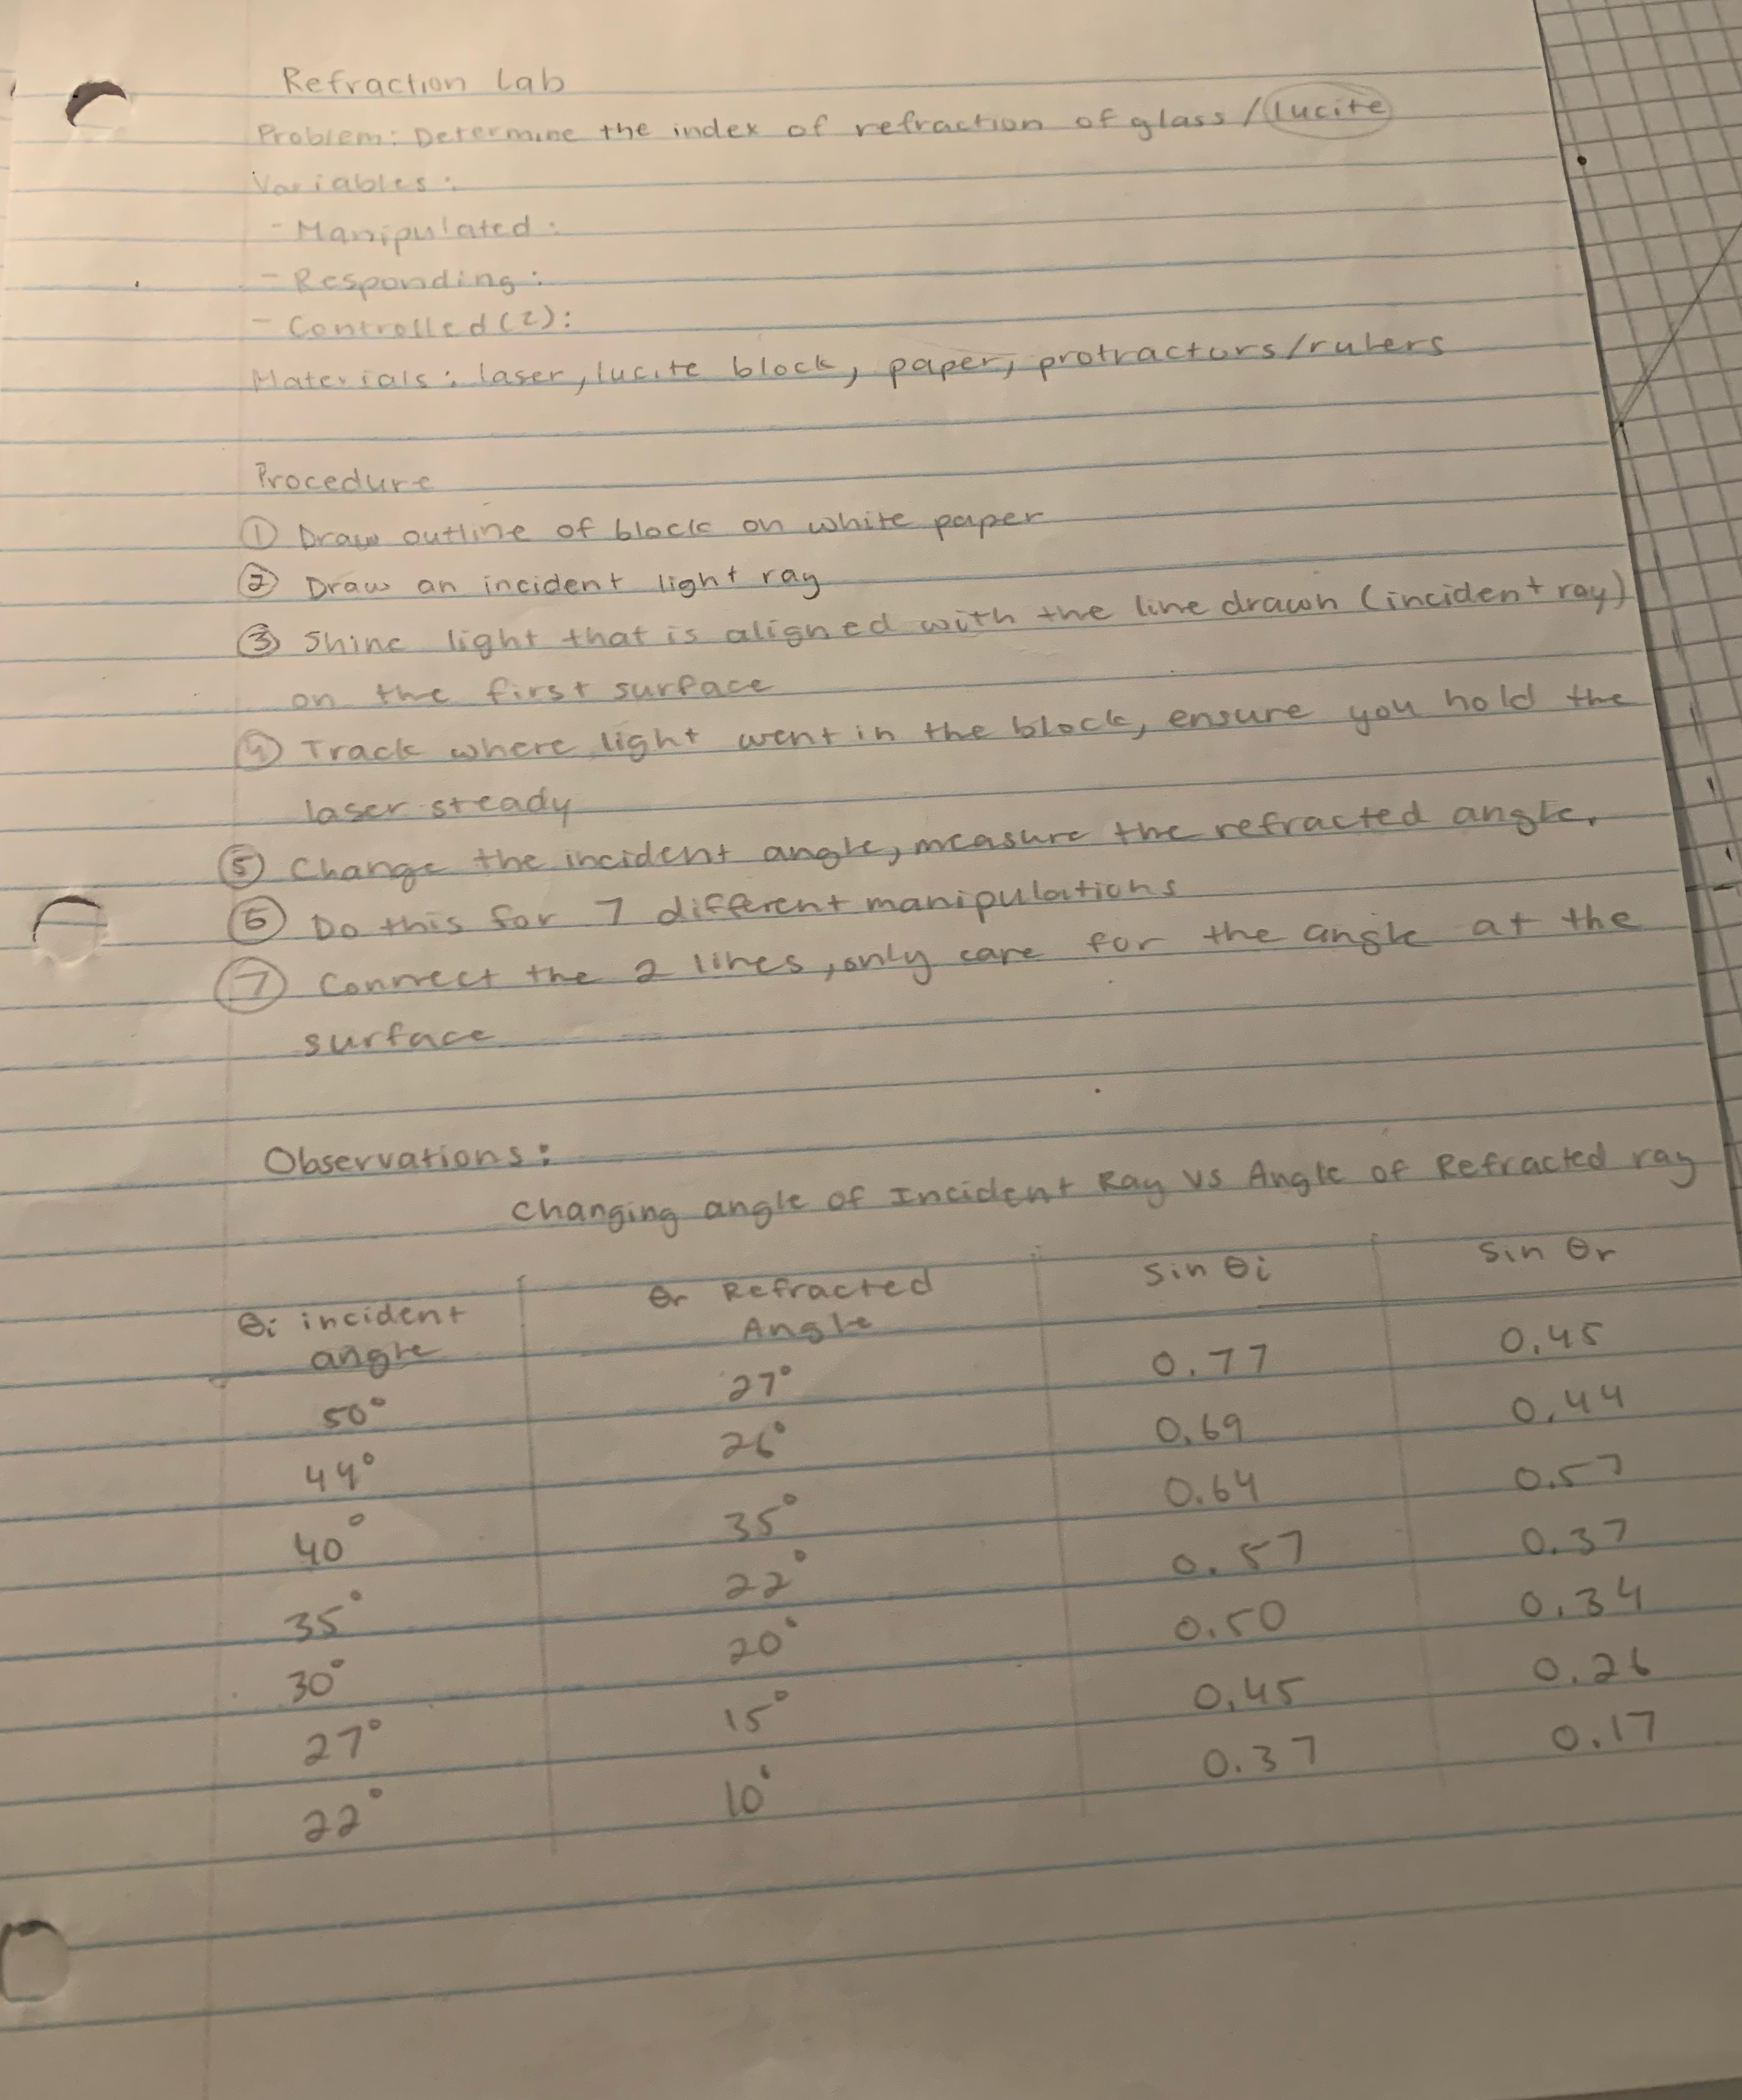 Refraction Lab
Problem: Determine the index of refraction of glass / lucite
Variables:
- Manipulated:
- Responding:
- Controlled (2):
Materials: laser, lucite block, paper, protractors/rulers
Procedure
① Draw outline of block on white paper
② Draw an incident light ray
③ Shine light that is aligned with the line drawn (incident ray)
on the first surface
④ Track where light went in the block, ensure you hold the
laser steady
⑤ Change the incident angle, measure the refracted angle.
⑥ Do this for 7 different manipulations
⑦ Connect the 2 lines, only care for the angle at the
surface
Observations:
Changing angle of Incident Ray vs Angle of Refracted ray
θi incident angle θr Refracted Angle sin θi sin θr
50° 27° 0.77 0.45
44° 26° 0.69 0.44
40° 35° 0.64 0.57
35° 22° 0.57 0.37
30° 20° 0.50 0.34
27° 15° 0.45 0.26
22° 10° 0.37 0.17